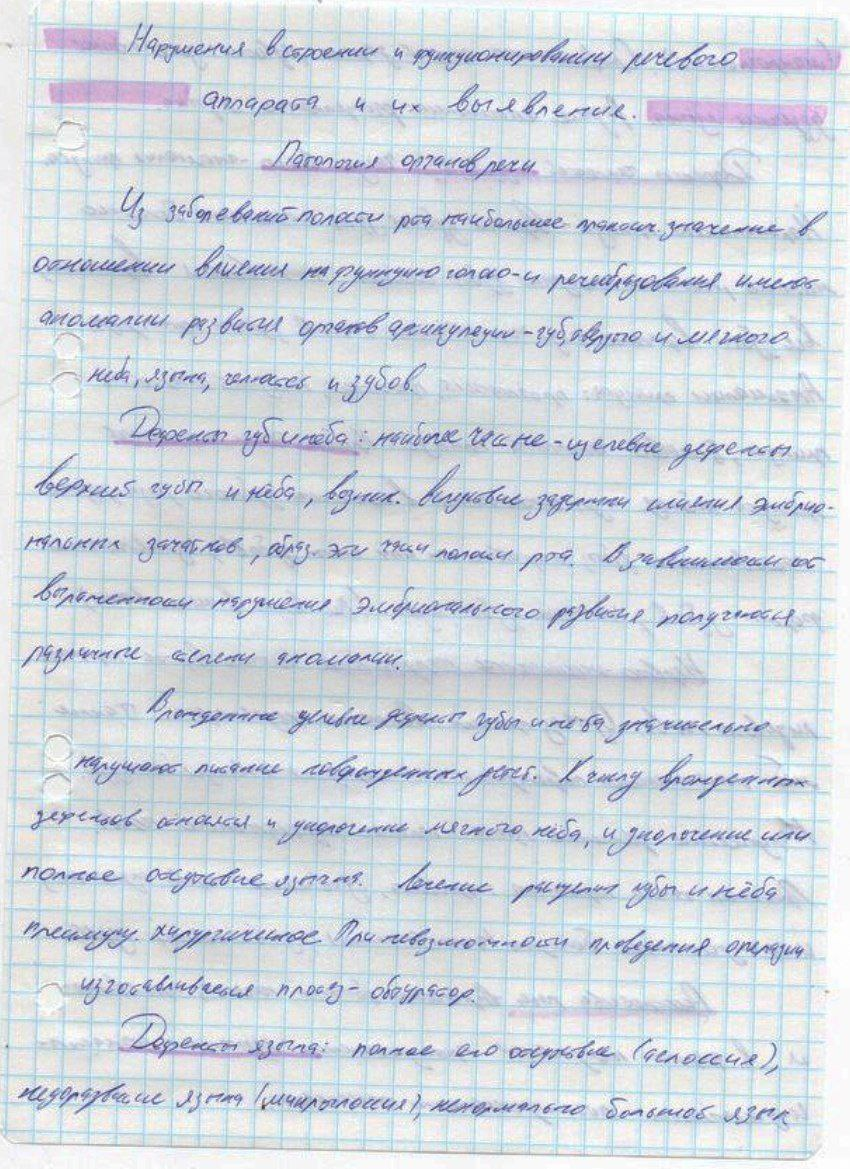 Нарушения в строении и функционировании речевого
аппарата и их выявление.
Патология органов речи
Из заболеваний полости рта наибольшее практич. значение в
отношении влияния на функцию голосо-и речеобразования имеют
аномалии развития органов артикуляции - губ, твердого и мягкого
неба, языка, челюстей и зубов.
Дефекты губ и нёба: наиболее частые - щелевые дефекты
верхней губы и нёба, возник. вследствие задержки слияния эмбрио-
нальных зачатков, образ. эти части полости рта. В зависимости от
выраженности нарушения эмбрионального развития получаются
различные степени аномалии.
Врожденные щелевые дефекты губы и нёба значительно
нарушают питание новорожденных детей. К числу врожденных
дефектов относятся и укорочение мягкого нёба, и укорочение или
полное отсутствие язычка. Лечение расщелин губы и нёба
преимущ. хирургическое. При невозможности проведения операции
изготавливается протез - обтуратор.
Дефекты языка: полное его отсутствие (аглоссия),
недоразвитие языка (микроглоссия), ненормально большой язык